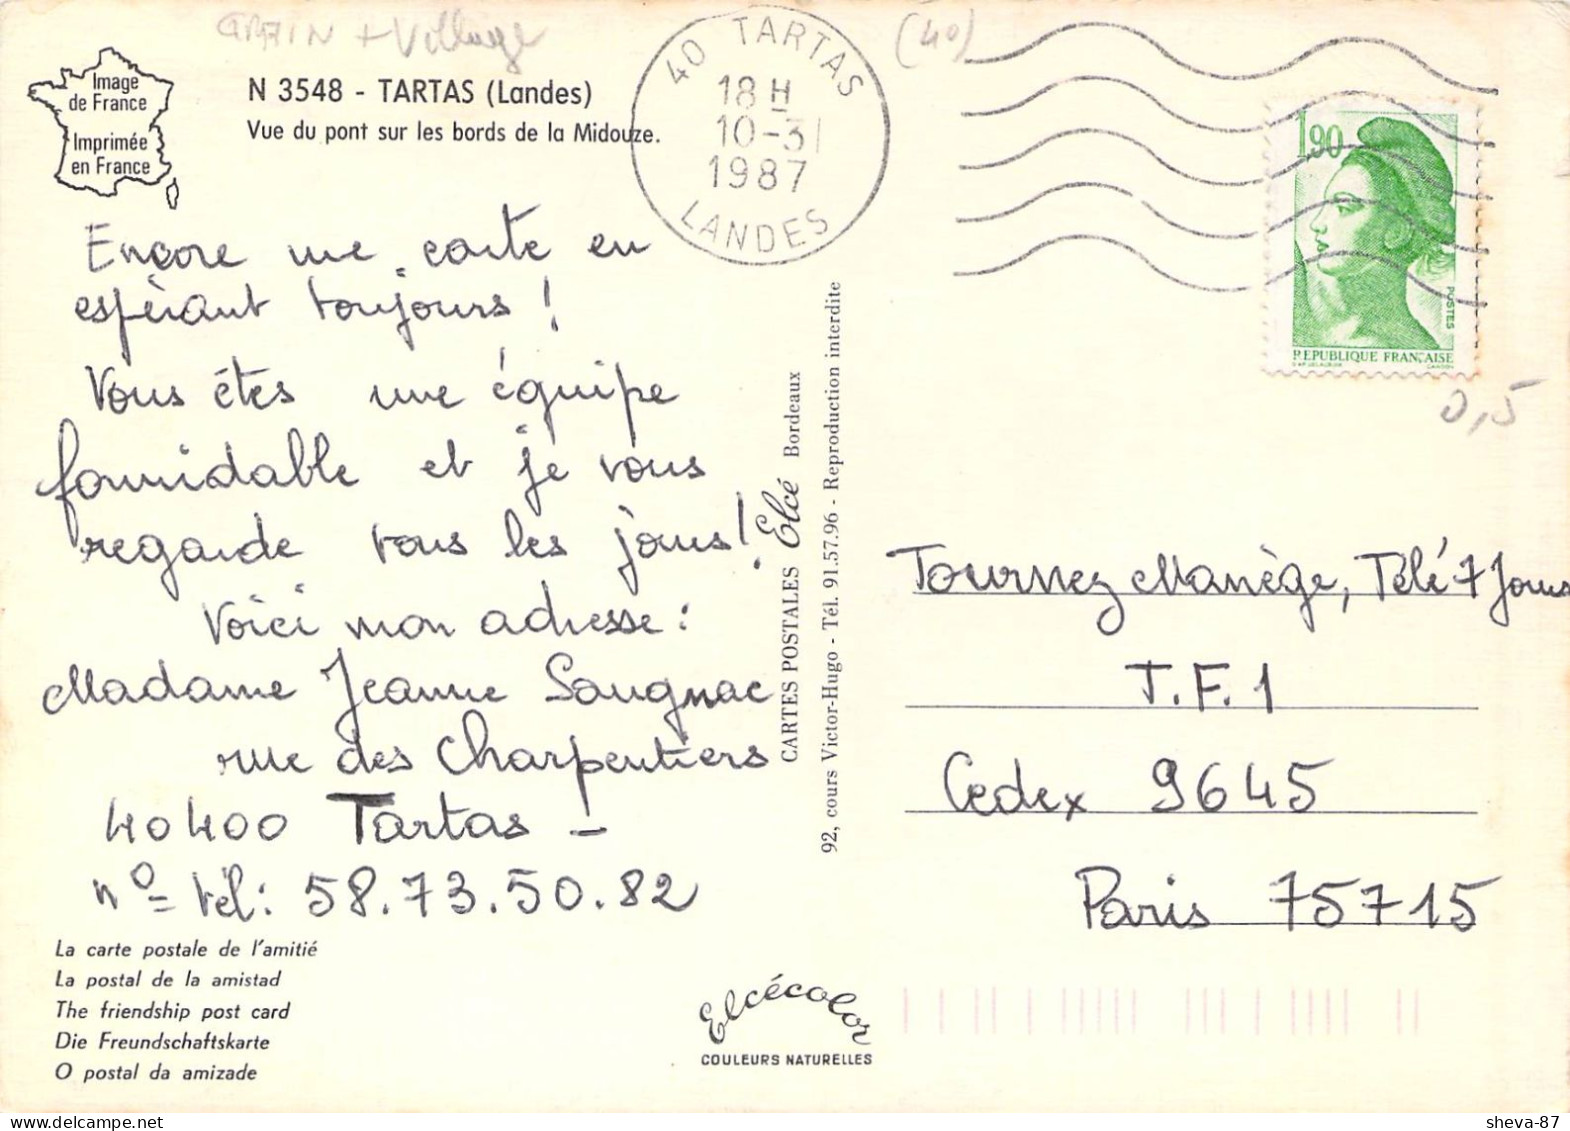 GRAIN + Village
(40)
Image
de France
Imprimée
en France
N 3548 - TARTAS (Landes)
Vue du pont sur les bords de la Midouze.
40 TARTAS
18 H
10-31
1987
LANDES
1,90
POSTES
REPUBLIQUE FRANÇAISE
0,5
Encore une carte en
espérant toujours !
Vous êtes une équipe
formidable et je vous
regarde tous les jours !
Voici mon adresse :
Madame Jeanne Saugnac
rue des Charpentiers
40400 Tartas -
n° = tél : 58.73.50.82
La carte postale de l'amitié
La postal de la amistad
The friendship post card
Die Freundschaftskarte
O postal da amizade
CARTES POSTALES Elcé Bordeaux
92, cours Victor-Hugo - Tél. 91.57.96 - Reproduction interdite
Elcécolor
COULEURS NATURELLES
Tournez Manège, Télé 7 Jours
T.F.1
Cedex 9645
Paris 75715
sheva-87